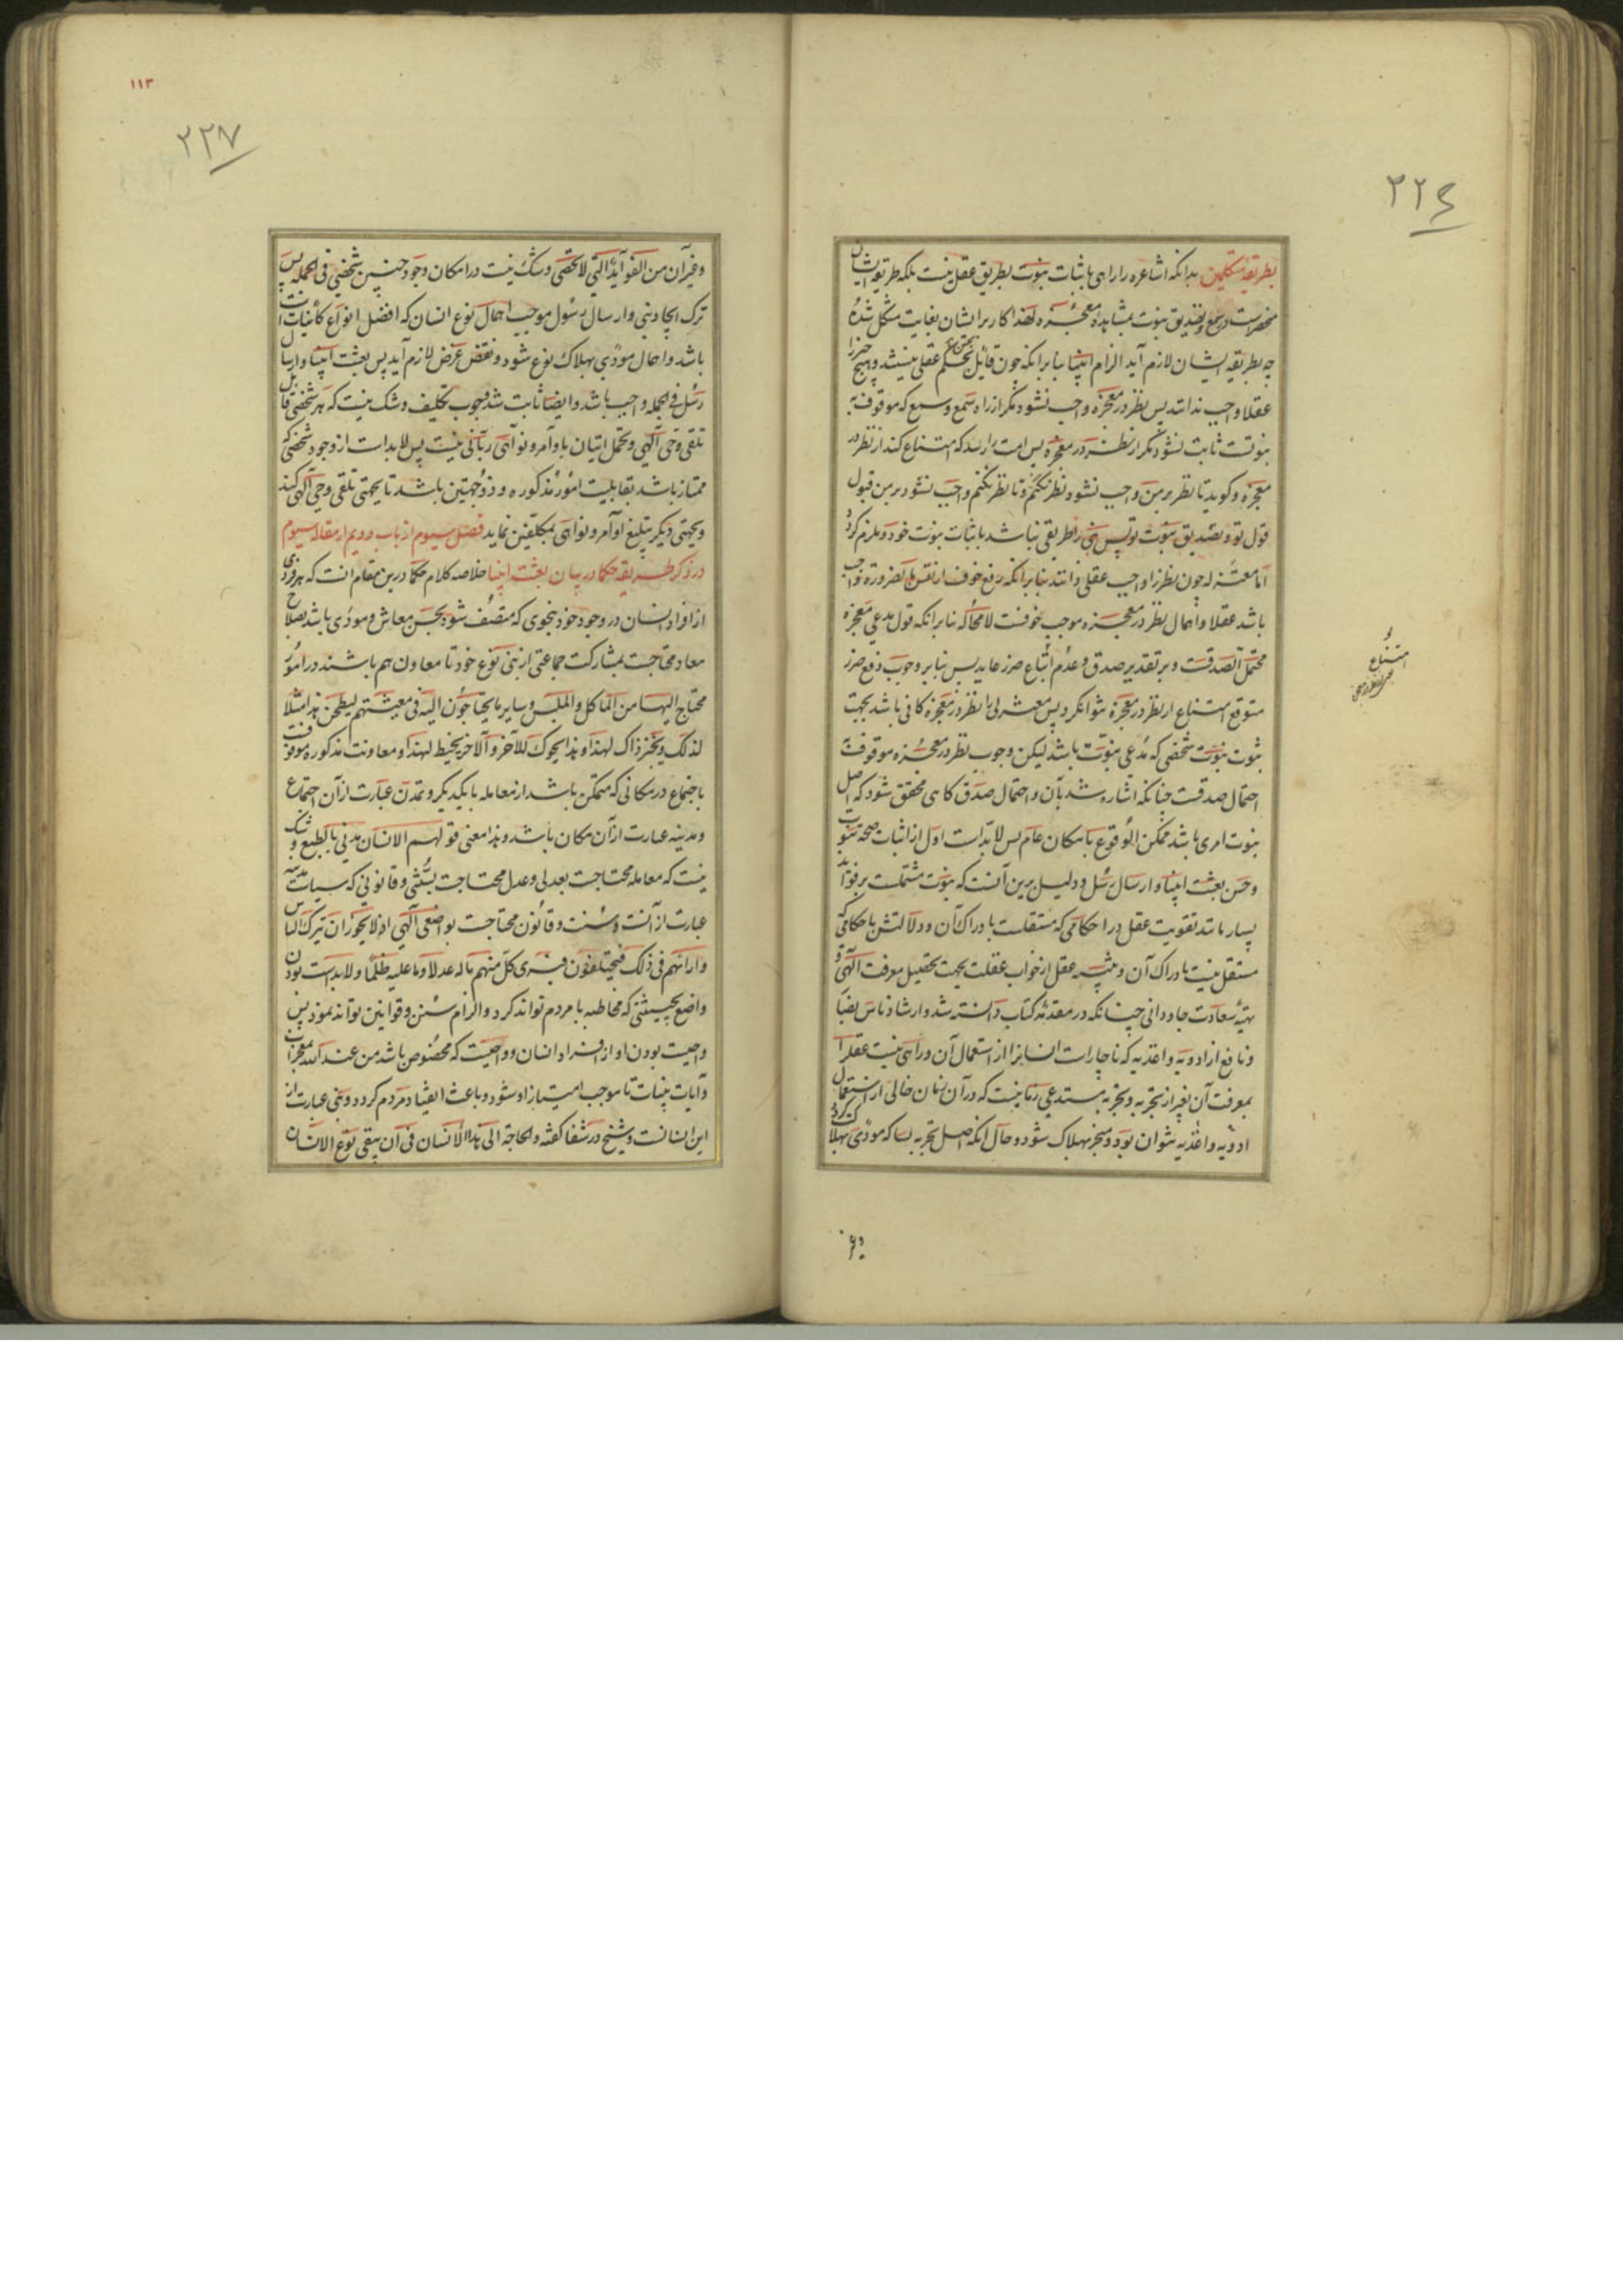 ۲۲٤
بطریقه متکلمین بدانکه اشاعره را راهی باثبات نبوت بطریق عقل نیست بلکه طریقه ایشان
منحصرست در سمع و تصدیق نبوت بمشاهده معجزه لهذا کار بر ایشان بغایت مشکل شده
چه بطریقه ایشان لازم آید الزام انبیا بنا برانکه چون قایل بتحسین عقلی نیستند و هیچ چیز را
عقلا واجب ندانند پس نظر در معجزه واجب نشود مگر از راه سمع و سمع که موقوف به
نبوتست ثابت نشود مگر از نظر در معجزه پس امت را رسد که امتناع کند از نظر در
معجزه و گوید تا نظر بر من واجب نشود نظر نکنم و تا نظر نکنم واجب نشود بر من قبول
قول تو و تصدیق نبوت تو پس نبی را طریقی نباشد باثبات نبوت خود و ملزم گردد
اما معتزله چون نظر را واجب عقلی دانند بنا برانکه رفع خوف از نفس بالضروره واجب
باشد عقلا و اهمال نظر در معجزه موجب خوفست لامحاله بنا برانکه قول مدعی معجزه
محتمل الصدقست و بر تقدیر صدق و عدم اتباع ضرر عاید پس بنا بر وجوب دفع ضرر
متوقع امتناع از نظر در معجزه نتوانکرد پس معتزلی را نظر در معجزه کافی باشد بجهت
ثبوت نبوت شخصی که مدعی نبوت باشد لیکن وجوب نظر در معجزه موقوفست
احتمال صدقست چنانکه اشاره شد بآن و احتمال صدق کاهی محقق شود که اصل
نبوت امری باشد ممکن الوقوع بامکان عام پس لابداست اول از اثبات صحه نبوت
و حسن بعثت انبیا و ارسال رسل و دلیل برین آنست که نبوت مشتملست بر فواید
بسیار مانند تقویت عقل در احکامی که مستقلست بادراک آن و دلالتش باحکامی که
مستقل نیست بادراک آن و تنبیه عقل از خواب غفلت بجهت تحصیل معرفت الهی و
تهیه سعادت جاودانی چنانکه در مقدمه کتاب دانسته شد و ارشاد ناس بمضار
و نافع از ادویه و اغذیه که ناچارات انسانرا از استعمال آن و راهی نیست عقل را
بمعرفت آن بغیر از تجربه و تجربه مستدعی زمانیست که در آن زمان خالی از استعمال
ادویه و اغذیه نتوان بود و منجر بهلاک شود و حال آنکه اصل تجربه بسا که مودی بهلاک گردد
امتناع
۱۱۳
۲۲۷
و غیر آن من الفواید التی لا تحصی و شک نیست در امکان وجود چنین شخصی فی الجمله پس
ترک ایجاد نبی و ارسال رسول موجب اهمال نوع انسان که افضل انواع کاینات است
باشد و اهمال مودی بهلاک نوع شود و نقض غرض لازم آید پس بعثت انبیا و ارسال
رسل فی الجمله واجب باشد و ایضا ثابت شد وجوب تکلیف و شک نیست که هر شخصی قابل
تلقی وحی الهی و تحمل اتیان باوامر و نواهی ربانی نیست پس لابداست از وجود شخصی که
ممتاز باشد بقابلیت امور مذکوره و ذوجهتین باشد تا بجهتی تلقی وحی الهی کند
و بجهتی دیگر تبلیغ اوامر و نواهی بمکلفین نماید فصل سیوم از باب دویم از مقاله سیوم
در ذکر طریقه حکما در بیان بعثت انبیا خلاصه کلام حکما درین مقام انست که هر فردی
از افراد انسان در وجود خود بنحوی که متصف شود بحسن معاش و مودی باشد بصلاح
معاد محتاجست بمشارکت جماعتی از بنی نوع خود تا معاون هم باشند در امور
محتاج الیها من الماکل و الملبس و سایر ما یحتاجون الیه فی معیشتهم لیطحن هذا مثلا
لذلک و یخبز ذاک لهذا و هذا یحوک للآخر و الآخر یخیط لهذا و معاونت مذکوره موقوفست
باجتماع در مکانی که متمکن باشد از معامله با یکدیگر و تمدن عبارت از آن اجتماع
و مدینه عبارت از آن مکان باشد و هذا معنی قولهم الانسان مدنی بالطبع و شک
نیست که معامله محتاجست بعدلی و عدل محتاجست بسنتی و قانونی که سیاست مدینه
عبارت از آنست و سنت و قانون محتاجست بواضعی الهی اذ لا یجوز ان تترک الناس
و ارائهم فی ذلک فیختلفون فیری کل منهم ما له عدلا و ما علیه ظلما و لابداست بودن
واضع بحیثیتی که مخاطبه با مردم تواند کرد و الزام سنن و قوانین تواند نمود پس
واجبست بودن او از افراد انسان و واجبست که مخصوص باشد من عند الله بمعجزات
و آیات بینات تا موجب امتیاز او شود و باعث انقیاد مردم گردد و نبی عبارت از
این انسانست و شیخ در شفا گفته و الحاجة الی هذا الانسان فی ان یبقی نوع الانسان